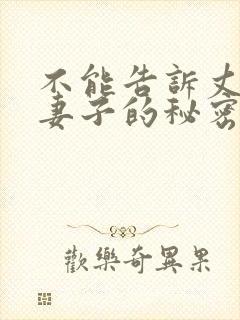 不能告訴丈
妻子的秘密
歡樂奇異果